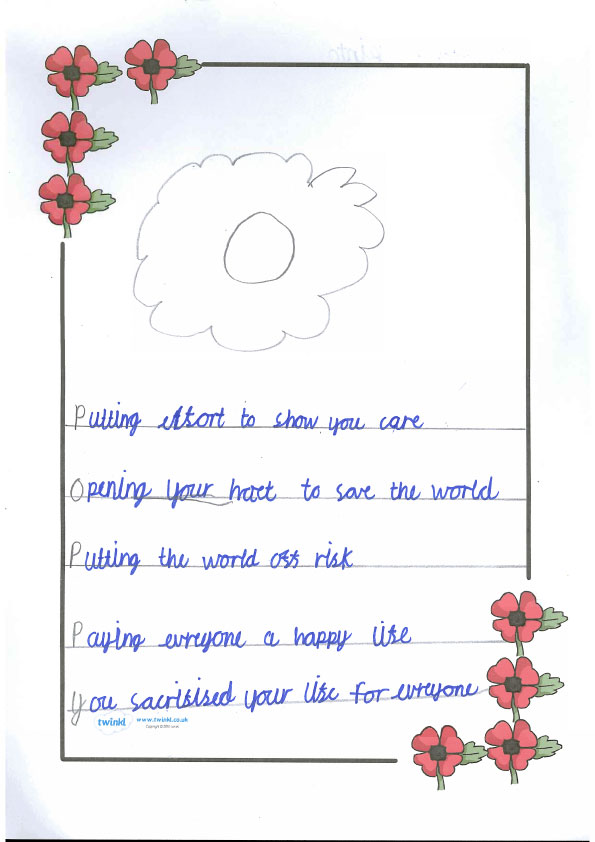 Putting effort to show you care
Opening your to save the world
Putting the world off risk
Paying evreyone a happy life
You sacrifised your life for evreyone
twinkl www.twinkl.co.uk